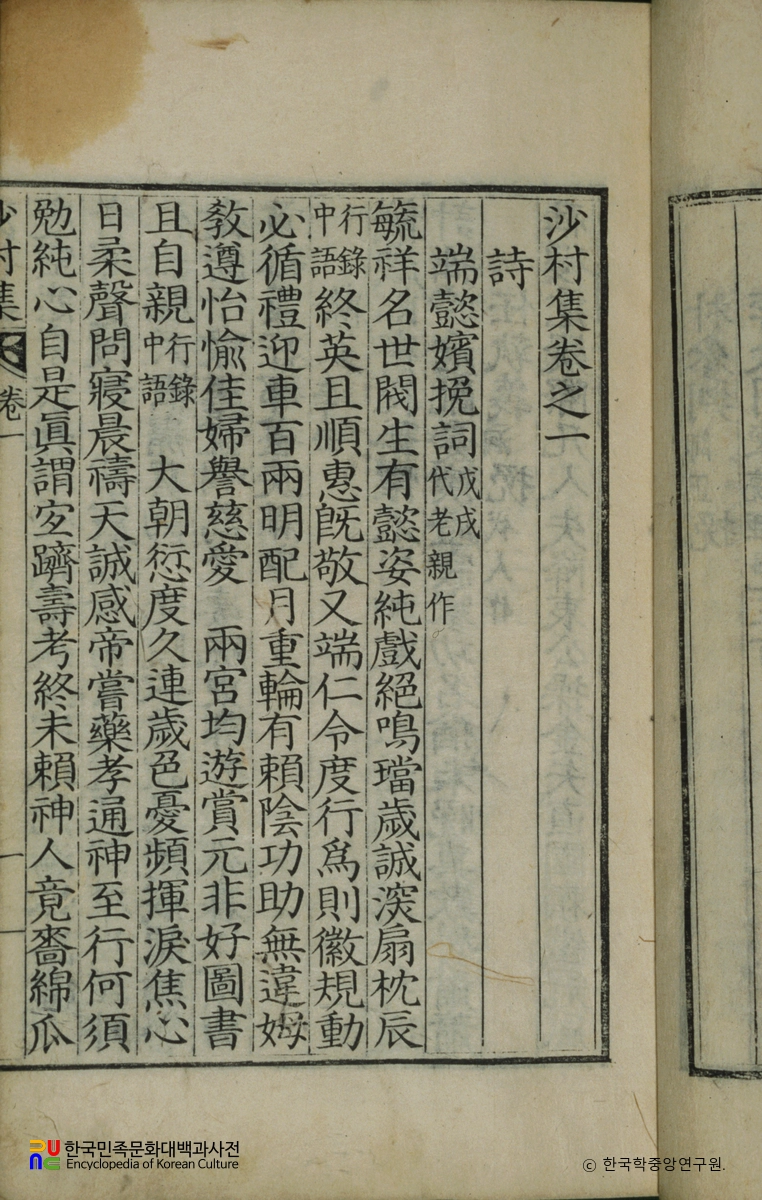 沙村集卷之一
詩
端懿嬪挽詞 戊戌 代老親作
毓祥名世閥生有懿姿純戲絕鳴璫歲誠深扇枕辰
行錄中語 終英且順惠旣敬又端仁令度行爲則徽規動
必循禮迎車百兩明配月重輪有賴陰功助無違姆
敎遵怡愉佳婦譽慈愛 兩宮均遊賞元非好圖書
且自親 行錄中語 大朝愆度久連歲色憂頻揮淚焦心
日柔聲問寢晨禱天誠感帝嘗藥孝通神至行何須
勉純心自是眞謂宜躋壽考終未賴神人竟嗇綿瓜
沙村集 卷一
한국민족문화대백과사전
Encyclopedia of Korean Culture
© 한국학중앙연구원.